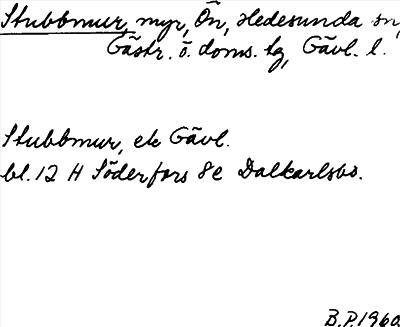 Stubbmur, myr, Ön, Hedesunda sn,
Gästr. ö. doms. tg, Gävl. l.
Stubbmur, ek Gävl.
bl. 12 H Söderfors 8e Dalkarlsbo.
B.P. 1960.